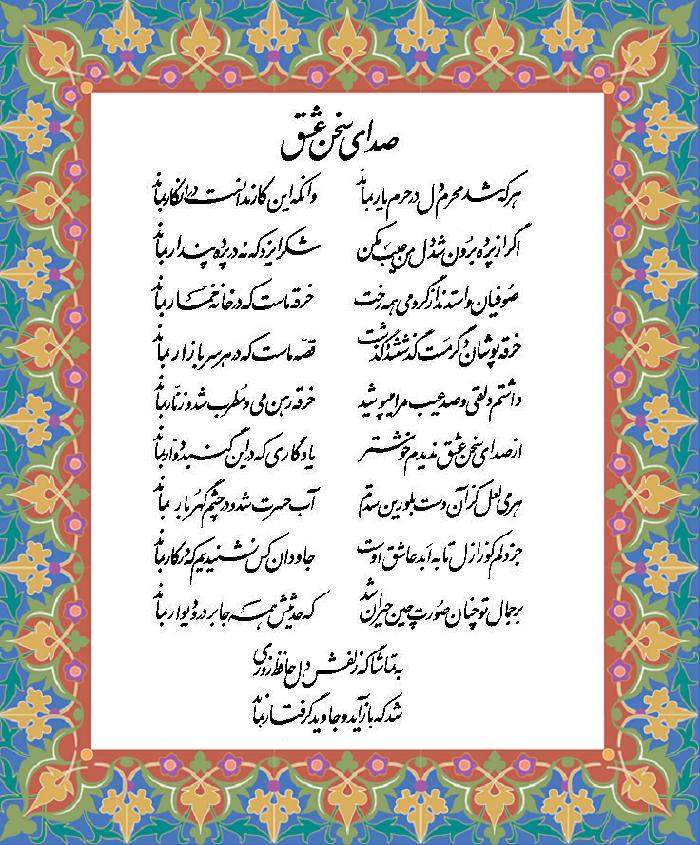 صدای سخن عشق
هر که شد محرم دل در حرم یار بماند وانکه این کار ندانست در انکار بماند
اگر از پرده برون شد دل من عیب مکن شکر ایزد که نه در پرده پندار بماند
صوفیان واستدند از گرو می همه رخت خرقه ماست که در خانه خمّار بماند
خرقه پوشان دگر مست گذشتند و گذشت قصّه ماست که در هر سر بازار بماند
داشتم دلقی و صد عیب مرا میپوشید خرقه رهن می و مطرب شد و زنّار بماند
از صدای سخن عشق ندیدم خوشتر یادگاری که در این گنبد دوّار بماند
هر می لعل کز آن دست بلورین ستدم آب حسرت شد و در چشم گهربار بماند
جز دلم کو ز ازل تا به ابد عاشق اوست جاودان کس نشنیدیم که در کار بماند
بر جمال تو چنان صورت چین حیران شد که حدیثش همه جا بر در و دیوار بماند
به تماشاگه زلفش دل حافظ روزی
شد که باز آید و جاوید گرفتار بماند